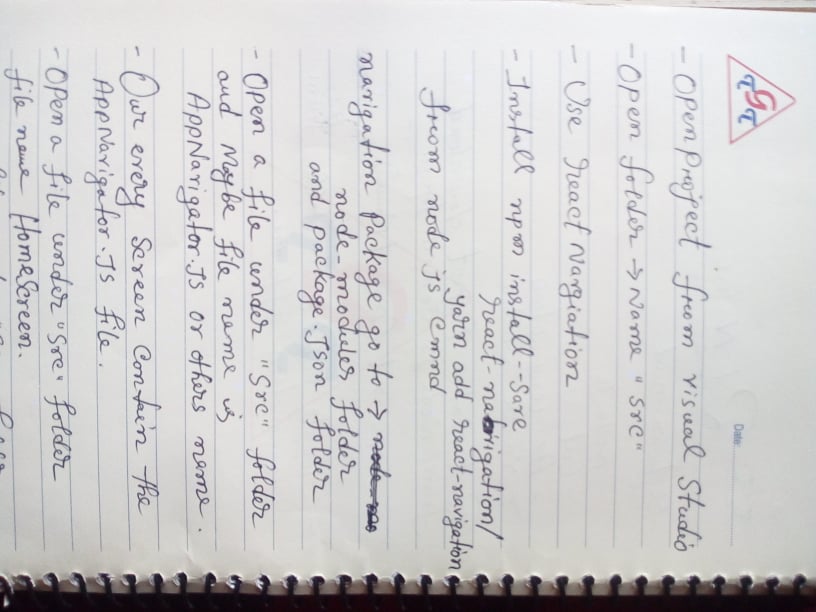 TGT
Date:
- Open project from visual Studio
- Open folder → Name "src"
- Use react Nargiation
- Install npm install --save
react-navigation/
yarn add react-navigation
from node js cmnd
navigation package go to →
node-modules folder
and package.Json folder
- Open a file under "src" folder
and maybe file name is
AppNavigator.JS or others name.
- Our every Screen Contain the
AppNavigator.JS file.
- Open a file under "src" folder
file name HomeScreen.